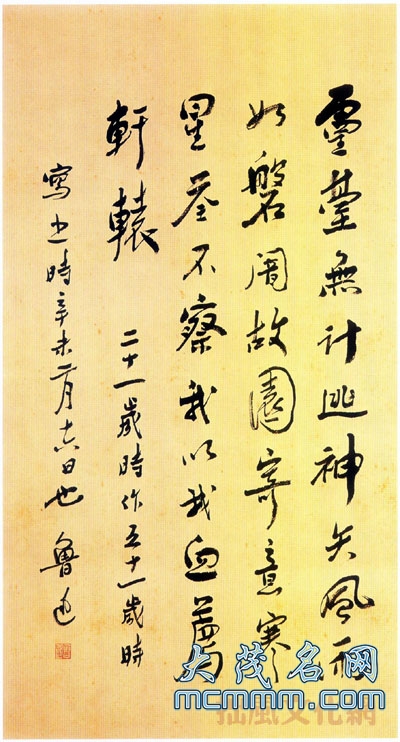 靈臺無計逃神矢風雨
如磐闇故園寄意寒
星荃不察我以我血薦
軒轅 二十一歲時作五十一歲時
寫之時辛未二月十六日也 魯迅
大茂名網
mcmmm.com